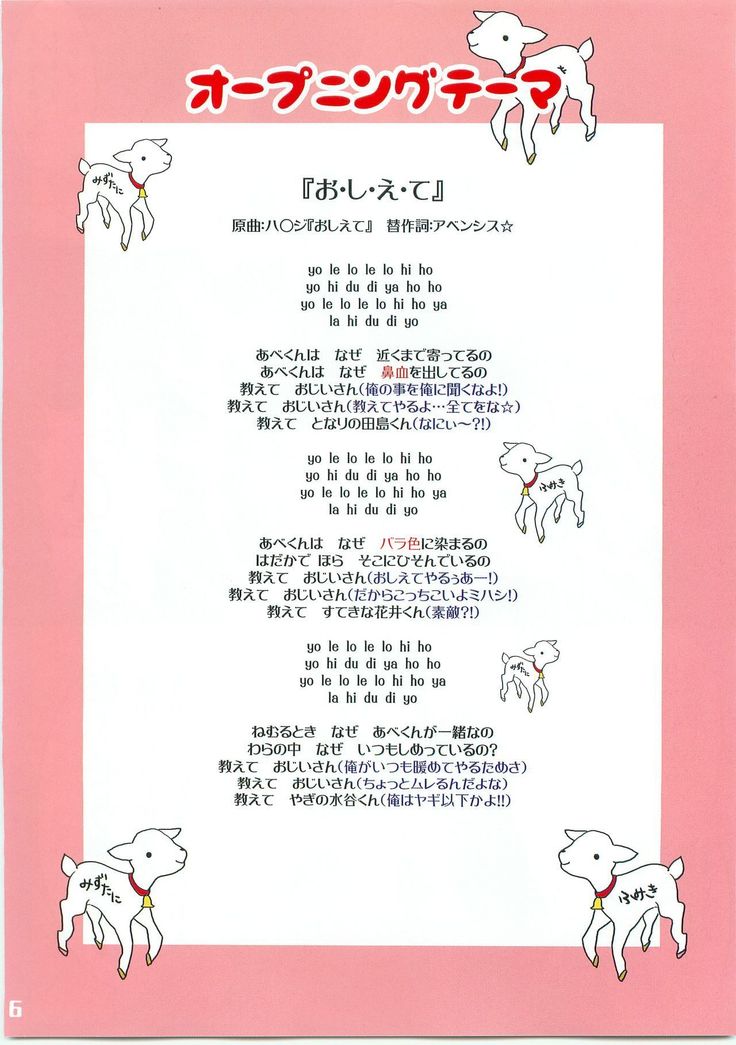 オープニングテーマ
みずたに
『お・し・え・て』
原曲:ハ〇ジ『おしえて』 替作詞:アベンシス☆
yo le lo le lo hi ho
yo hi du di ya ho ho
yo le lo le lo hi ho ya
la hi du di yo
あべくんは なぜ 近くまで寄ってるの
あべくんは なぜ 鼻血を出してるの
教えて おじいさん(俺の事を俺に聞くなよ!)
教えて おじいさん(教えてやるよ…全てをな☆)
教えて となりの田島くん(なにぃ〜?!)
yo le lo le lo hi ho
yo hi du di ya ho ho
yo le lo le lo hi ho ya
la hi du di yo
ふみき
あべくんは なぜ バラ色に染まるの
はだかで ほら そこにひそんでいるの
教えて おじいさん(おしえてやるぅあー!)
教えて おじいさん(だからこっちこいよミハシ!)
教えて すてきな花井くん(素敵?!)
yo le lo le lo hi ho
yo hi du di ya ho ho
yo le lo le lo hi ho ya
la hi du di yo
みずたに
ねむるとき なぜ あべくんが一緒なの
わらの中 なぜ いつもしめっているの?
教えて おじいさん(俺がいつも暖めてやるためさ)
教えて おじいさん(ちょっとムレるんだよな)
教えて やぎの水谷くん(俺はヤギ以下かよ!!)
みずたに
ふみき
6